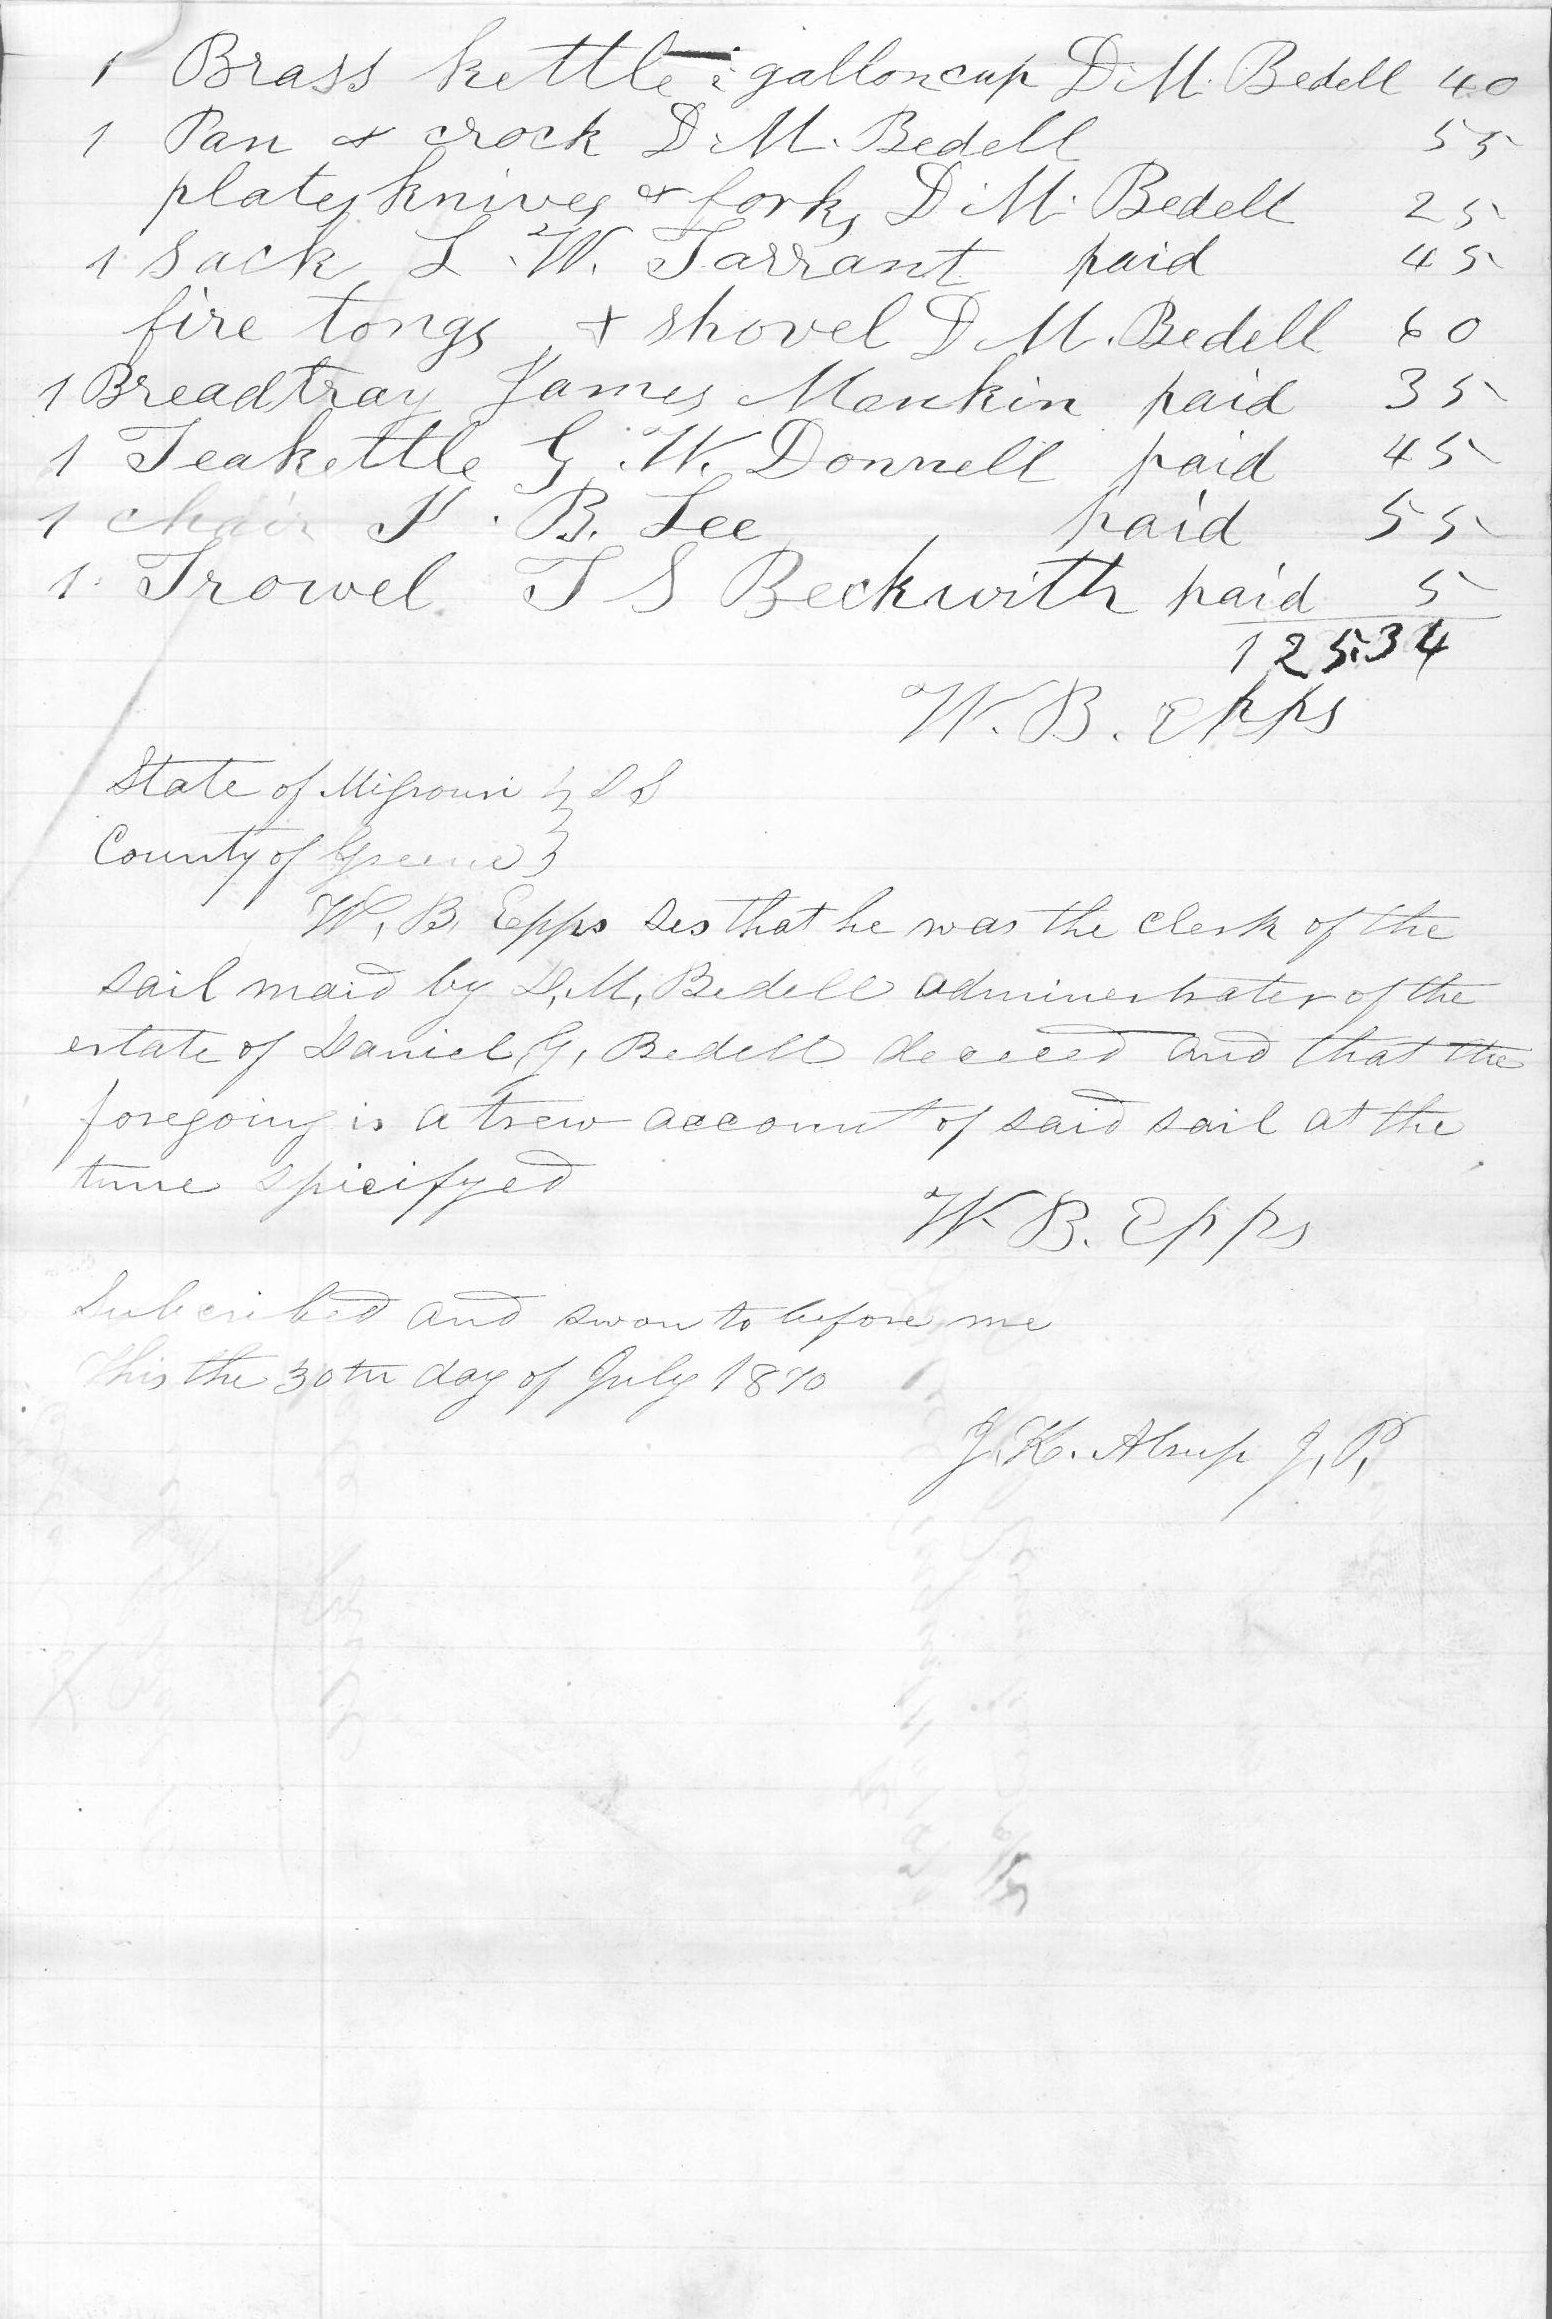 1 Brass kettle & gallon cup D. M. Bedell 40
1 Pan & crock D. M. Bedell 55
plates knives & forks D. M. Bedell 25
1 Sack L. W. Tarrant paid 45
fire tongs & shovel D. M. Bedell 60
1 Breadtray James Mankin paid 35
1 Teakettle G. W. Donnell paid 45
1 chair K. B. Lee paid 55
1. Trowel T S Beckwith paid 5
125.34
W. B. Epps
State of Missouri } SS
County of Greene }
W, B, Epps ses that he was the clerk of the
sail maid by D, M, Bedell administrater of the
estate of Daniel G, Bedell dececed and that the
foregoing is a trew account of said sail at the
time spicifyed
W. B. Epps
Subcribed and swon to before me
this the 30th day of July 1870
J. K. Alsup J, P,